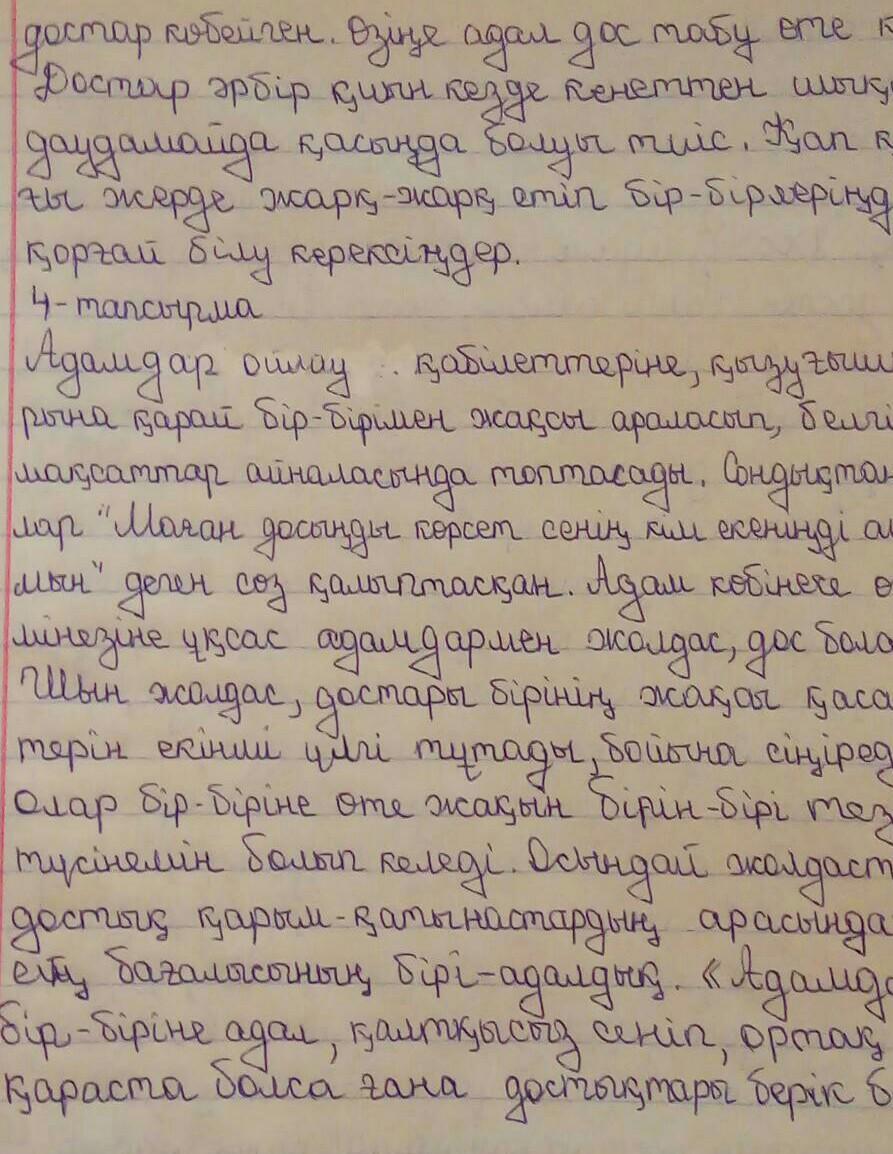 достар көбейген. Өзіңе адал дос табу өте қ
Достар әрбір қиын кезде кенеттен шық
даудамайда қасыңда болуы тиіс. Қап қ
ғы жерде жарқ-жарқ етіп бір-бірлеріңд
қорғай білу керексіңдер.
4-тапсырма
Адамдар ойлау қабілеттеріне, қызуғыш
рына қарай бір-бірімен жақсы араласып, белгі
мақсаттар айналасында топтасады. Сондықтан
лар "Маған досыңды көрсет сенің кім екеніңді а
мын" деген сөз қалыптасқан. Адам көбінесе ө
мінезіне ұқсас адамдармен жолдас, дос бола
Шын жолдас, достары бірінің жақсы қаса
терін екінші үлгі тұтады, бойына сіңіред
Олар бір-біріне өте жақын бірін-бірі тез
түсінемін болып келеді. Осындай жолдаст
достық қарым-қатынастардың арасында
ең бағалысының бірі-адалдық. «Адамда
бір-біріне адал, қалтқысыз сеніп, ортақ
қараста болса ғана достықтары берік б